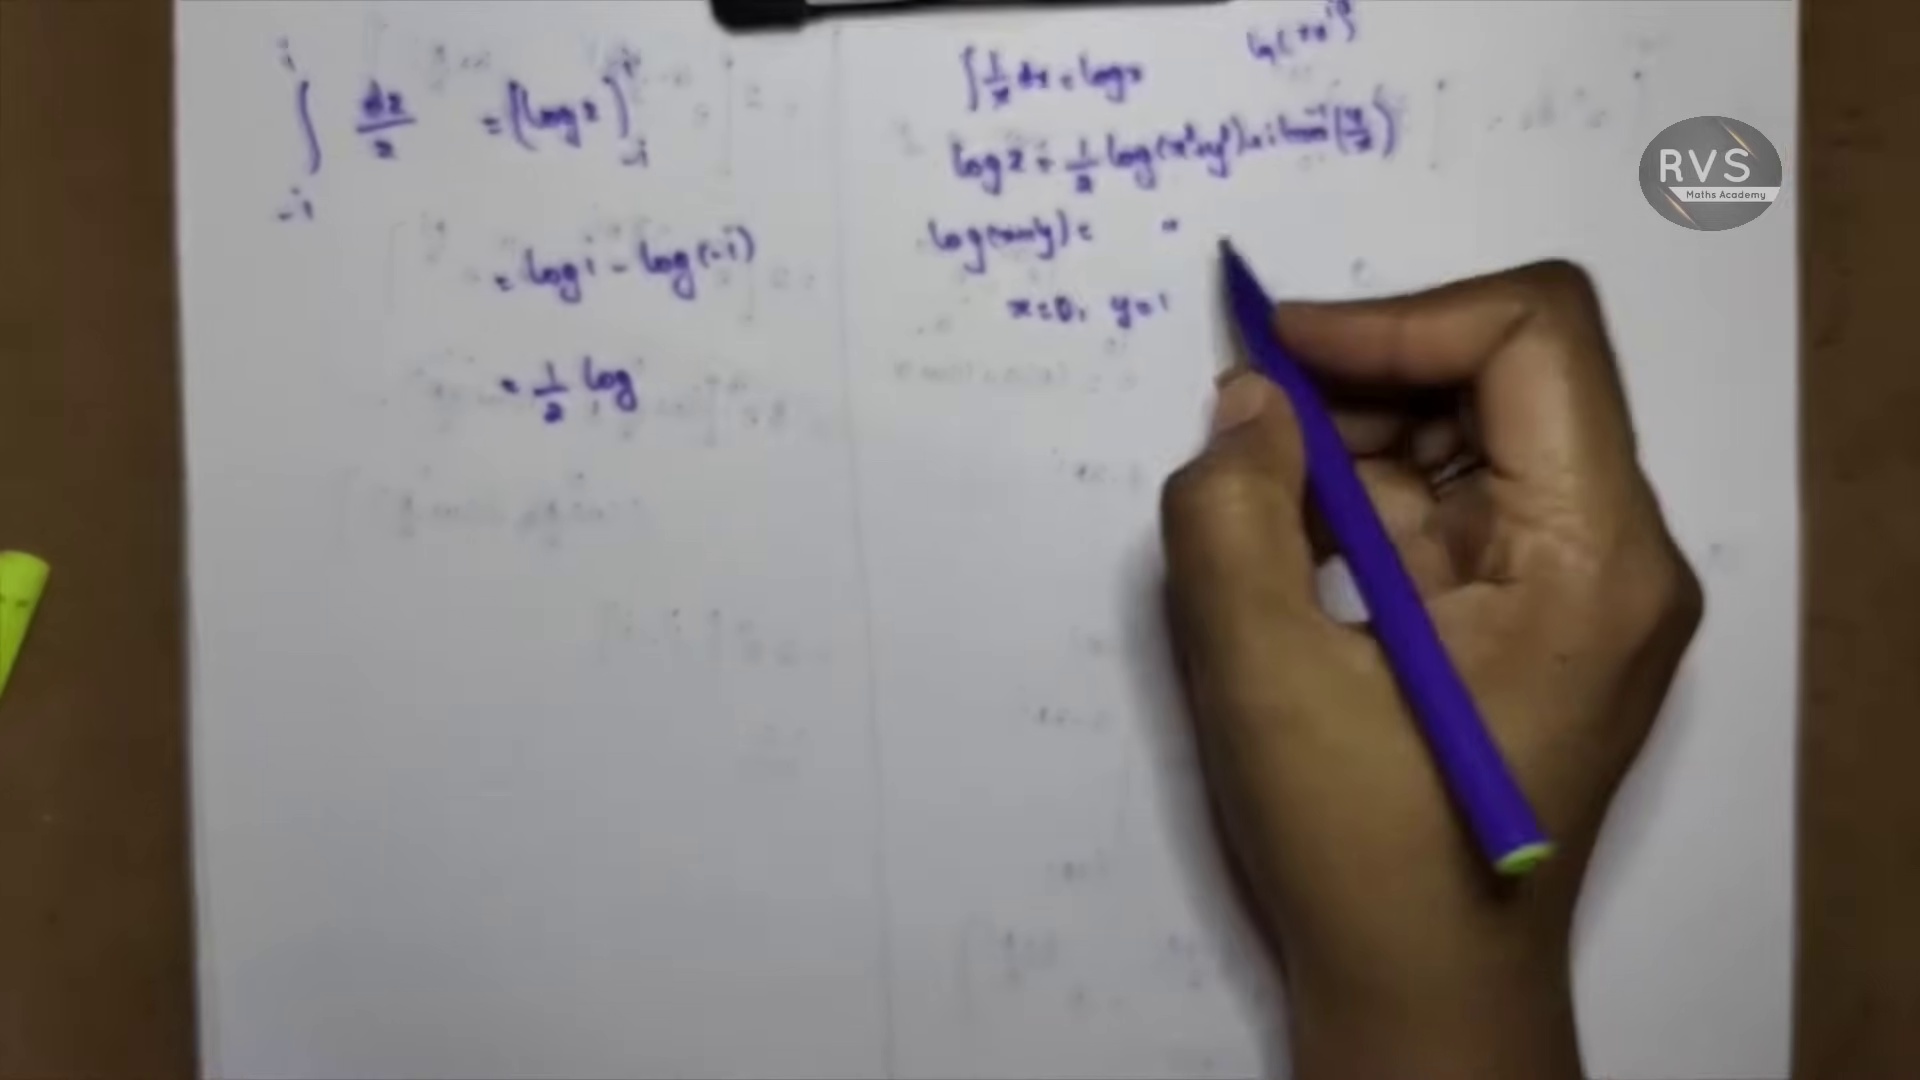 ∫_{-i}^{i} dz/z = (log z)_{-i}^{i}
= log i - log(-i)
= 1/2 log
∫ 1/x dx = log x
log z = 1/2 log(x²+y²) + i tan⁻¹(y/x)
log(x+iy) = "
x=0, y=1
RVS
Maths Academy